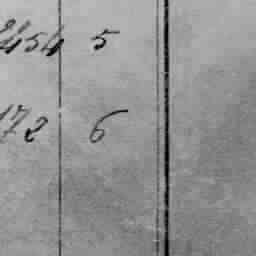 2454 5
172 6